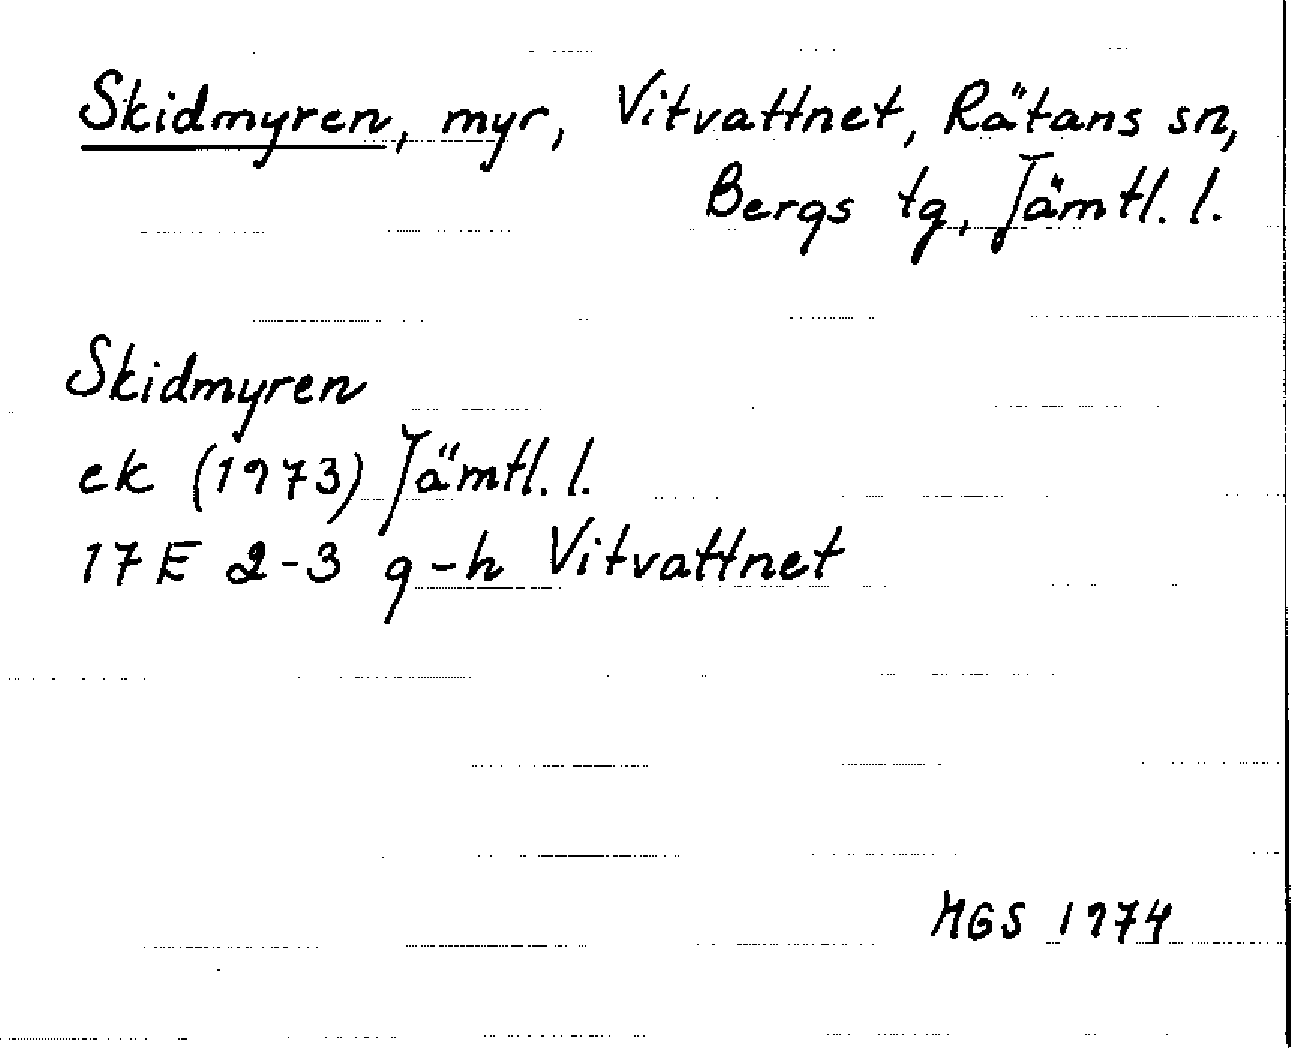 Skidmyren, myr, Vitvattnet, Rätans sn,
Bergs tg, Jämtl. l.
Skidmyren
ek (1973) Jämtl. l.
17E 2-3 g-h Vitvattnet
MGS 1974